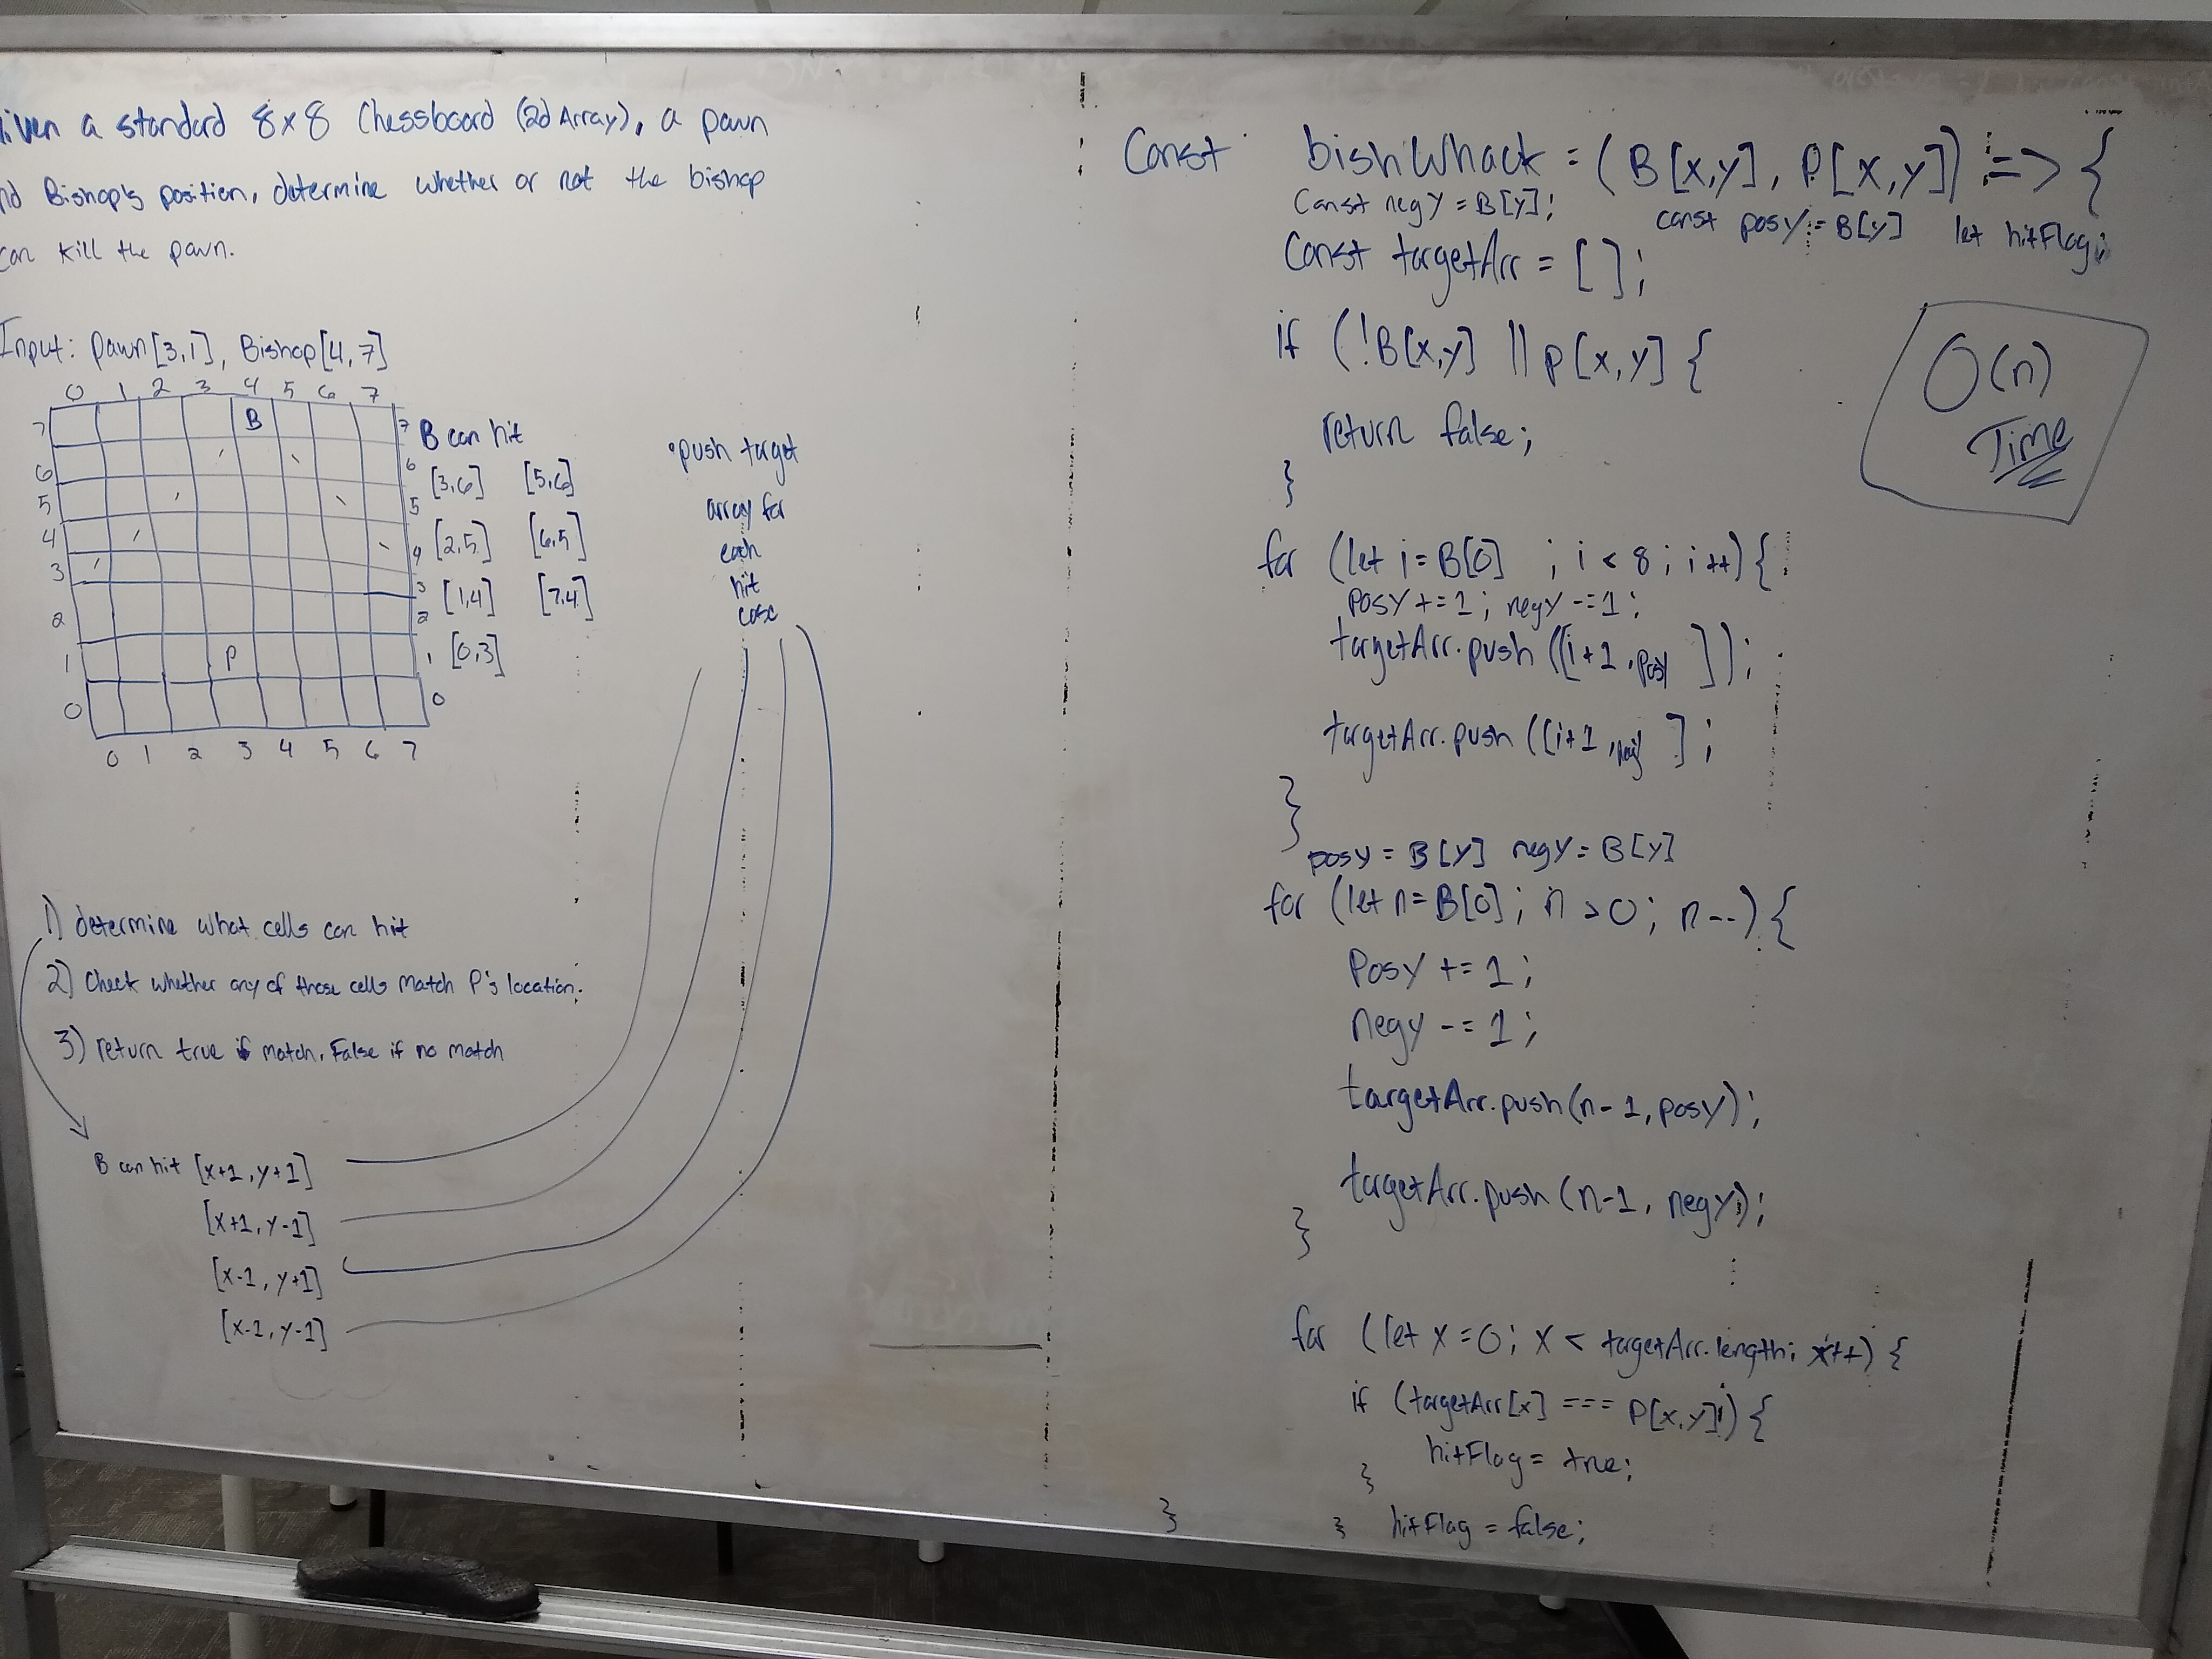 iven a standard 8x8 Chessboard (2d Array), a pawn
nd Bishop's position, determine whether or not the bishop
can kill the pawn.
Input: Pawn[3,1], Bishop[4,7]
0 1 2 3 4 5 6 7
7 B 7
6 6
5 5
4 4
3 3
2 2
1 P 1
0 0
0 1 2 3 4 5 6 7
B can hit
[3,6] [5,6]
[2,5] [6,5]
[1,4] [7,4]
[0,3]
push target
array for
each
hit
case
1) determine what cells can hit
2) Check whether any of those cells match P's location.
3) return true if match, False if no match
B can hit [x+1, y+1]
[x+1, y-1]
[x-1, y+1]
[x-1, y-1]
Const bishWhack = (B[x,y], P[x,y]) => {
Const negY = B[y]; const posY = B[y] let hitFlag;
Const targetArr = [];
if (!B[x,y] || P[x,y] {
return false;
}
for (let i=B[0] ; i < 8; i++) {
posY += 1; negY -= 1;
targetArr.push([i+1, posy ]);
targetArr.push([i+1, negy ];
}
posy = B[y] negy = B[y]
for (let n=B[0]; n > 0; n--) {
PosY += 1;
negy -= 1;
targetArr.push(n-1, posy);
targetArr.push(n-1, negy);
}
for (let x=0; x < targetArr.length; x++) {
if (targetArr[x] === P[x,y]) {
hitFlag = true;
}
} } hitFlag = false;
O(n)
Time